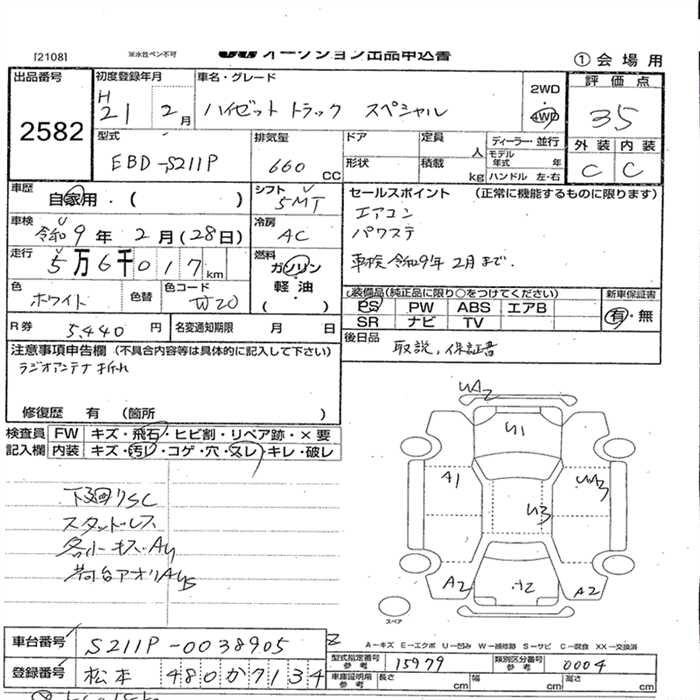 [2108]
※水性ペン不可
オークション出品申込書
① 会場用
出品番号
2582
初度登録年月
H 21 2 月
車名・グレード
ハイゼット トラック スペシャル
2WD
4WD
評価点
35
型式
EBD-S211P
排気量
660 CC
ドア
形状
定員
人
積載
kg
ディーラー・並行
モデル年式 年
ハンドル 左・右
外装 内装
C C
車歴
自家用・( )
シフト
5MT
セールスポイント (正常に機能するものに限ります)
エアコン
パワステ
車検 令和9年 2月まで.
車検
令和 9 年 2 月 (28 日)
冷房
AC
走行
5 万 6 千 0 1 7 km
燃料
ガソリン・軽油・( )
色
ホワイト
色替
色コード
W20
装備品(純正品に限り○をつけてください)
PS PW ABS エアB
SR ナビ TV
新車保証書
有・無
R券 5,440 円
名変通知期限 月 日
後日品
取説, 保証書
注意事項申告欄 (不具合内容等は具体的に記入して下さい)
ラジオアンテナ折れ
修復歴 有 (箇所 )
検査員記入欄
FW キズ・飛石・ヒビ割・リペア跡・×要
内装 キズ・汚レ・コゲ・穴・スレ・キレ・破レ
下廻りSC
スタッドレス
各小キズ・AU
荷台アオリAUS
UA2
U1
A1
UA3
U3
A2
Y2
A2
スペア
A-キズ E-エクボ U-凹み W-補修跡 S-サビ C-腐食 XX-交換済
車台番号
S211P-0038905
型式指定番号 参考
15979
類別区分番号 参考
0004
登録番号
松本 480 か 7134
車庫証明用 参考
長さ cm 幅 cm 高さ cm